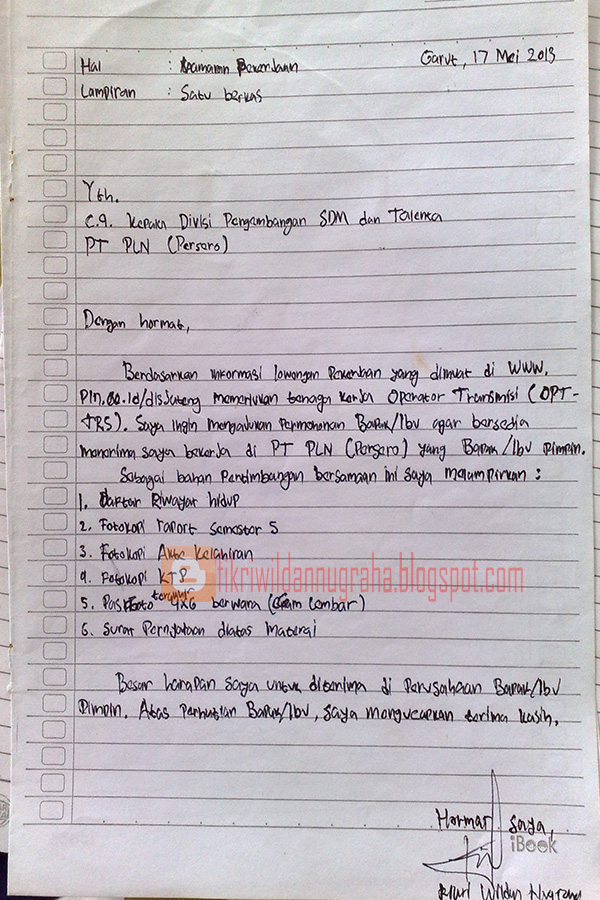 Hal : Lamaran Pekerjaan Garut, 17 Mei 2013
Lampiran : Satu berkas
Yth.
c.q. Kepala Divisi Pengembangan SDM dan Talenta
PT PLN (Persero)
Dengan hormat,
Berdasarkan informasi lowongan Pekerjaan yang dimuat di WWW.
Pln.co.id/disjateng memerlukan tenaga kerja Operator Transmisi (OPT-
TRS). Saya ingin mengajukan Permohonan Bapak/Ibu agar bersedia
menerima saya bekerja di PT PLN (Persero) yang Bapak/Ibu Pimpin.
Sebagai bahan Pertimbangan bersamaan ini saya melampirkan :
1. Daftar Riwayat hidup
2. Fotokopi raport Semester 5
3. Fotokopi Akte Kelahiran
4. Fotokopi KTP
fikriwildannugraha.blogspot.com
5. Pas Foto terakhir 4x6 berwarna (Enam Lembar)
6. Surat Pernyataan diatas Materai
Besar harapan saya untuk diterima di Perusahaan Bapak/Ibu
Pimpin. Atas Perhatian Bapak/Ibu, saya mengucapkan terima kasih.
Hormat saya,
iBook
Fikri Wildan Nugraha